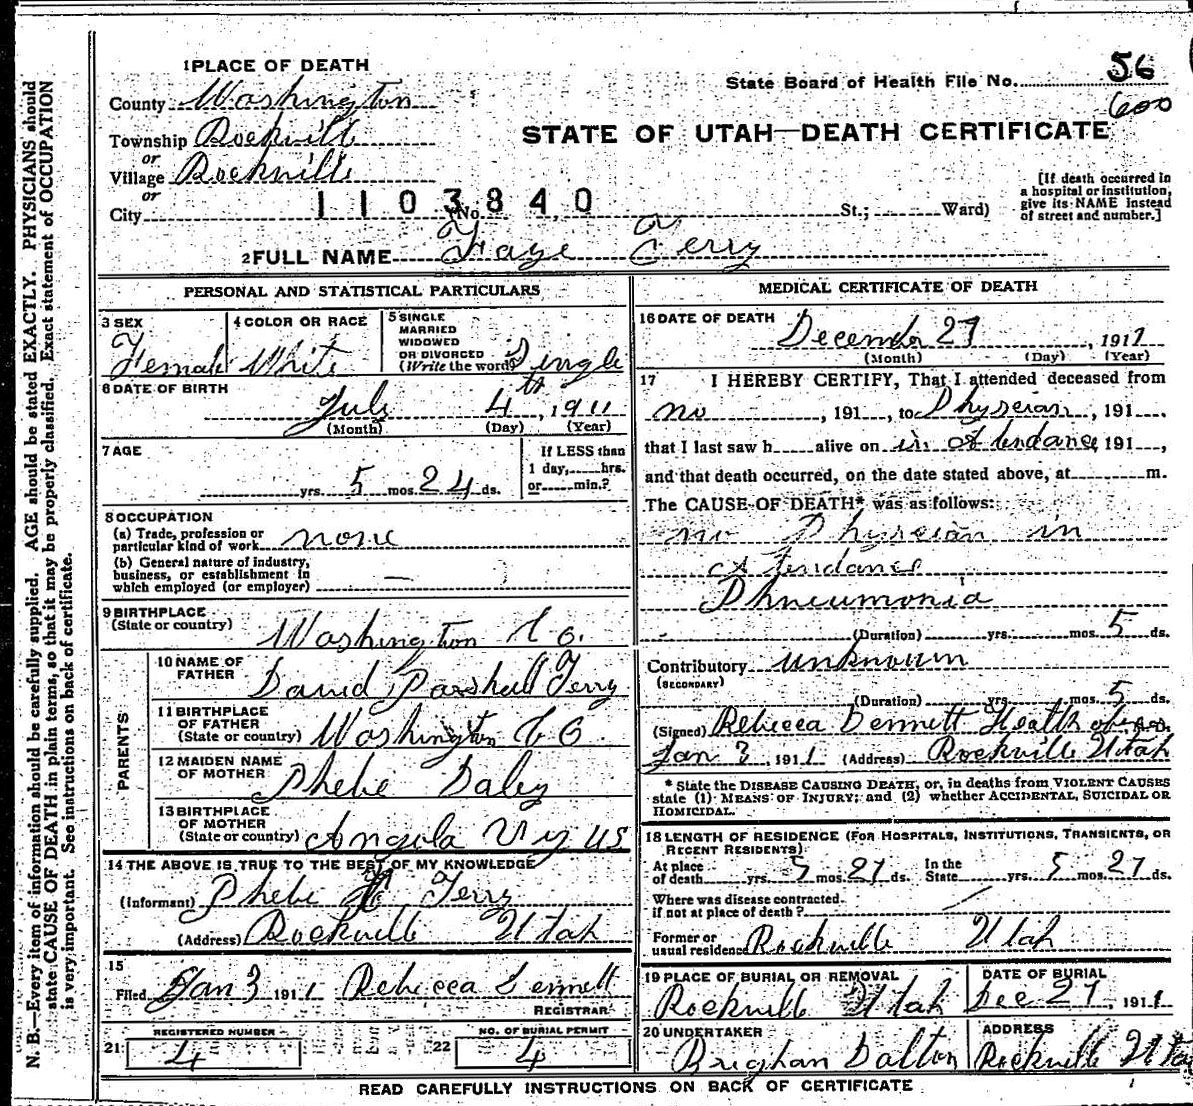 N. B.—Every item of information should be carefully supplied. AGE should be stated EXACTLY. PHYSICIANS should
state CAUSE OF DEATH in plain terms, so that it may be properly classified. Exact statement of OCCUPATION
is very important. See instructions on back of certificate.
1 PLACE OF DEATH
State Board of Health File No. 56
600
County Washington
STATE OF UTAH—DEATH CERTIFICATE
Township Rockville
or
Village Rockville
or
City (No. St.; Ward)
1103840
[If death occurred in
a hospital or institution,
give its NAME instead
of street and number.]
2 FULL NAME Faye Terry
PERSONAL AND STATISTICAL PARTICULARS
3 SEX
Female
4 COLOR OR RACE
White
5 SINGLE
MARRIED
WIDOWED
OR DIVORCED
(Write the word) Single
6 DATE OF BIRTH
July 4th, 1911
(Month) (Day) (Year)
7 AGE
yrs. 5 mos. 24 ds.
If LESS than
1 day, hrs.
or min.?
8 OCCUPATION
(a) Trade, profession or
particular kind of work none
(b) General nature of industry,
business, or establishment in
which employed (or employer) —
9 BIRTHPLACE
(State or country) Washington Co.
PARENTS
10 NAME OF
FATHER David Parshall Terry
11 BIRTHPLACE
OF FATHER
(State or country) Washington Co.
12 MAIDEN NAME
OF MOTHER Phebe
13 BIRTHPLACE
OF MOTHER
(State or country) US
14 THE ABOVE IS TRUE TO THE BEST OF MY KNOWLEDGE
(Informant) Phebe Terry
(Address) Rockville Utah
15
Filed Jan 3 1911 Rebecca Dennett
REGISTRAR
REGISTERED NUMBER
21 4
NO. OF BURIAL PERMIT
22 4
MEDICAL CERTIFICATE OF DEATH
16 DATE OF DEATH
December 27, 1911
(Month) (Day) (Year)
17 I HEREBY CERTIFY, That I attended deceased from
no, 191 , to Physcian, 191 .
that I last saw h alive on in Atendance 191 ,
and that death occurred, on the date stated above, at m.
The CAUSE OF DEATH* was as follows:
no Physcian in
Atendance
Phneumonia
(Duration) yrs. mos. 5 ds.
Contributory unknown
(SECONDARY)
(Duration) yrs. mos. 5 ds.
(Signed) Rebecca Dennett Health M.D.
Jan 3, 1911 (Address) Rockville Utah
* State the DISEASE CAUSING DEATH, or, in deaths from VIOLENT CAUSES
state (1) MEANS OF INJURY; and (2) whether ACCIDENTAL, SUICIDAL OR
HOMICIDAL.
18 LENGTH OF RESIDENCE (FOR HOSPITALS, INSTITUTIONS, TRANSIENTS, OR
RECENT RESIDENTS)
At place
of death yrs. 5 mos. 27 ds. In the
State yrs. 5 mos. 27 ds.
Where was disease contracted.
if not at place of death?
Former or
usual residence Rockville Utah
19 PLACE OF BURIAL OR REMOVAL
Rockville Utah
DATE OF BURIAL
Dec 27, 1911
20 UNDERTAKER
Brighan Dalton
ADDRESS
Rockville Utah
READ CAREFULLY INSTRUCTIONS ON BACK OF CERTIFICATE